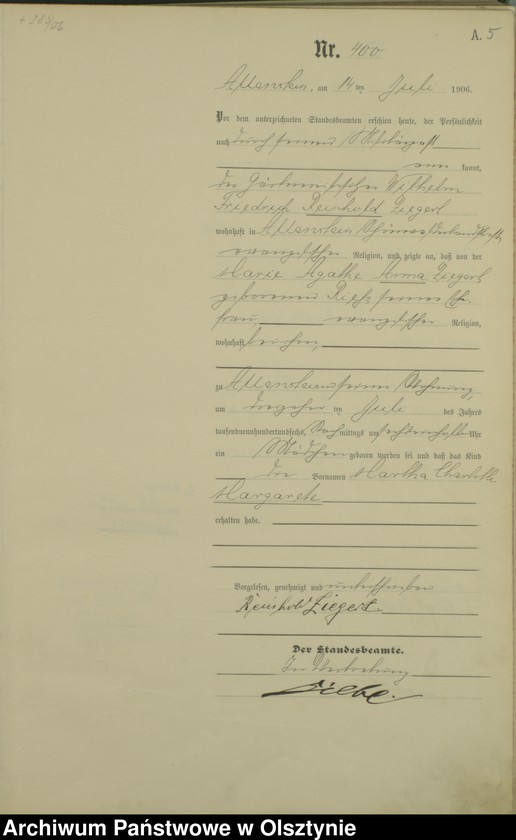 A. 5
Nr. 400
Allenstein, am 14 ten Juli 1906.
Vor dem unterzeichneten Standesbeamten erschien heute, der Persönlichkeit
nach durch seinen
kannt,
der Wilhelm
Friedrich Reinhold Ziegert
wohnhaft in Allenstein
evangelischer Religion, und zeigte an, daß von der
Marie Agathe Anna Ziegert
geborenen seiner Ehe-
frau, evangelischer Religion,
wohnhaft bei ihm,
zu Allenstein in seiner Wohnung,
am dreizehn ten Juli des Jahres
tausendneunhundertundsechs, Nachmittags um Uhr
ein Mädchen geboren worden sei und daß das Kind
die Vornamen Martha Charlotte
Margarete
erhalten habe.
Vorgelesen, genehmigt und unterschrieben
Reinhold Ziegert
Der Standesbeamte.
In Vertretung
Archiwum Państwowe w Olsztynie